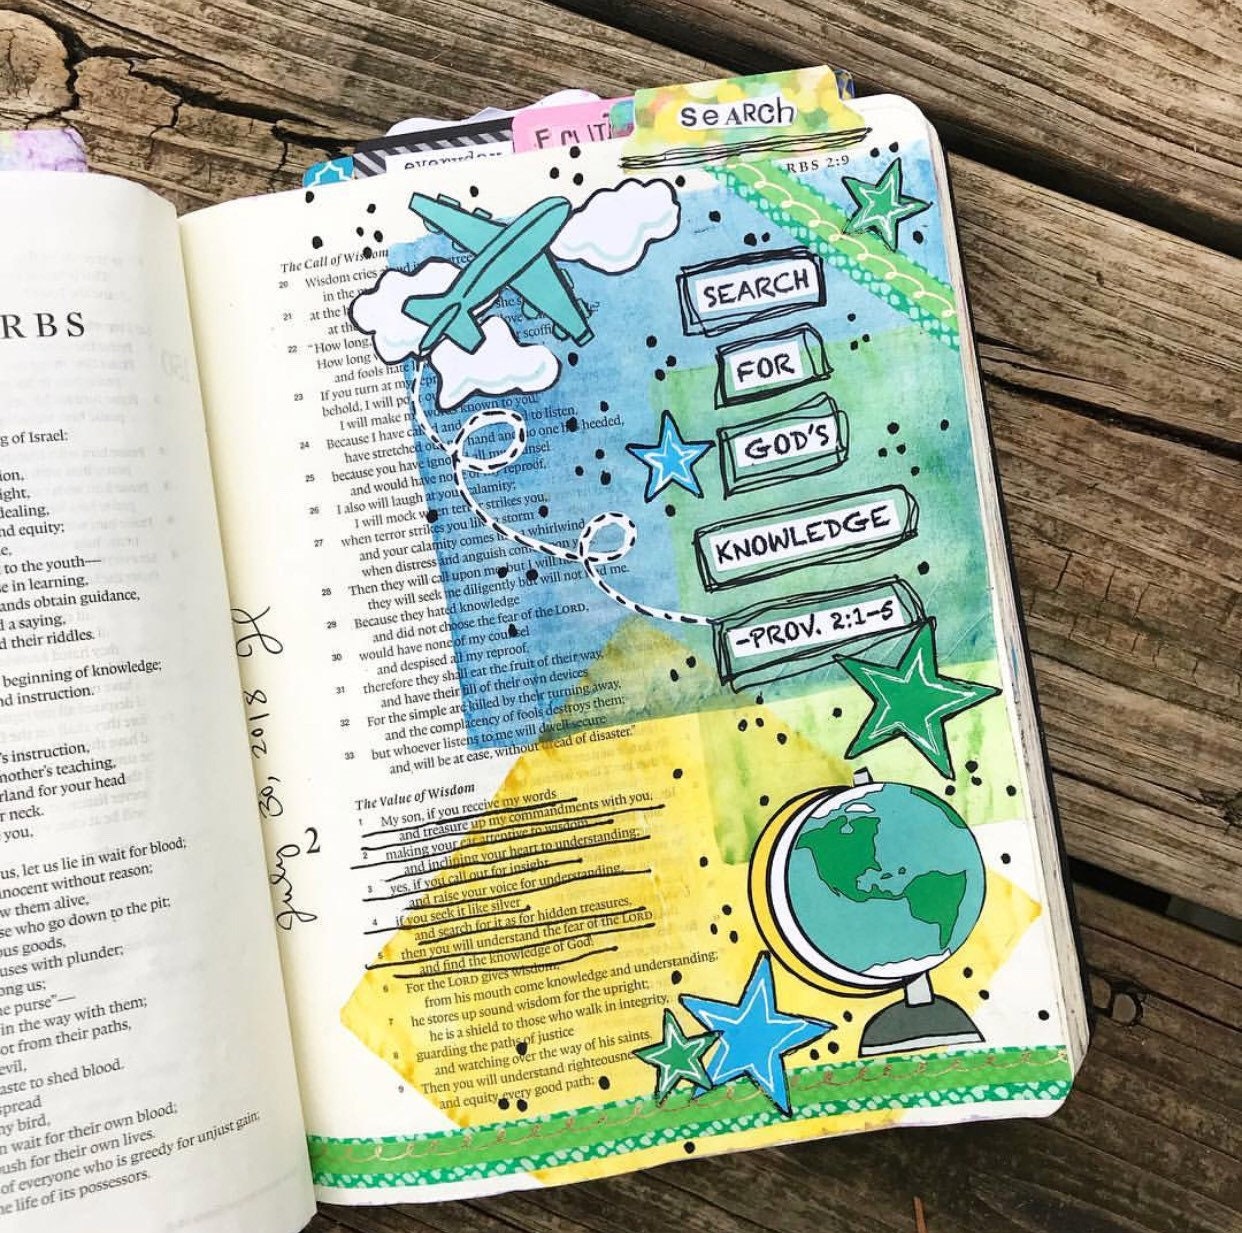 RBS
g of Israel:
ion,
ight,
dealing,
nd equity;
e,
to the youth—
e in learning,
ands obtain guidance,
d a saying,
d their riddles.
beginning of knowledge;
nd instruction.
's instruction,
nother's teaching,
rland for your head
r neck.
you,
us, let us lie in wait for blood;
nnocent without reason;
w them alive,
se who go down to the pit;
ous goods,
uses with plunder;
ong us;
ne purse"—
in the way with them;
ot from their paths,
evil,
aste to shed blood.
spread
ny bird,
n wait for their own blood;
ush for their own lives.
of everyone who is greedy for unjust gain;
he life of its possessors.
everyday
SeARCh
RBS 2:9
The Call of Wisdom
20 Wisdom cries
in the
21 at the
at the
22 "How long,
How long
and fools hate
23 If you turn at my
behold, I will
I will make my words known to you.
24 Because I have called and to listen,
have stretched out hand and no one has heeded,
25 because you have ignored all my counsel
and would have none of my reproof,
26 I also will laugh at your calamity;
I will mock when terror strikes you,
27 when terror strikes you like storm
and your calamity comes whirlwind
when distress and anguish come upon
28 Then they will call upon me, but I will
they will seek me diligently but will not find me.
29 Because they hated knowledge
and did not choose the fear of the LORD,
30 would have none of my counsel
and despised all my reproof,
31 therefore they shall eat the fruit of their way,
and have their fill of their own devices
32 For the simple are killed by their turning away,
and the complacency of fools destroys them;
33 but whoever listens to me will dwell secure
and will be at ease, without dread of disaster."
The Value of Wisdom
2
1 My son, if you receive my words
and treasure up my commandments with you,
2 making your ear attentive to wisdom
and inclining your heart to understanding;
3 yes, if you call out for insight
and raise your voice for understanding,
4 if you seek it like silver
and search for it as for hidden treasures,
5 then you will understand the fear of the LORD
and find the knowledge of God.
6 For the LORD gives wisdom;
from his mouth come knowledge and understanding;
7 he stores up sound wisdom for the upright;
he is a shield to those who walk in integrity,
8 guarding the paths of justice
and watching over the way of his saints.
9 Then you will understand righteousness
and equity, every good path;
SEARCH
FOR
GOD'S
KNOWLEDGE
-PROV. 2:1-5
July 30, 2018